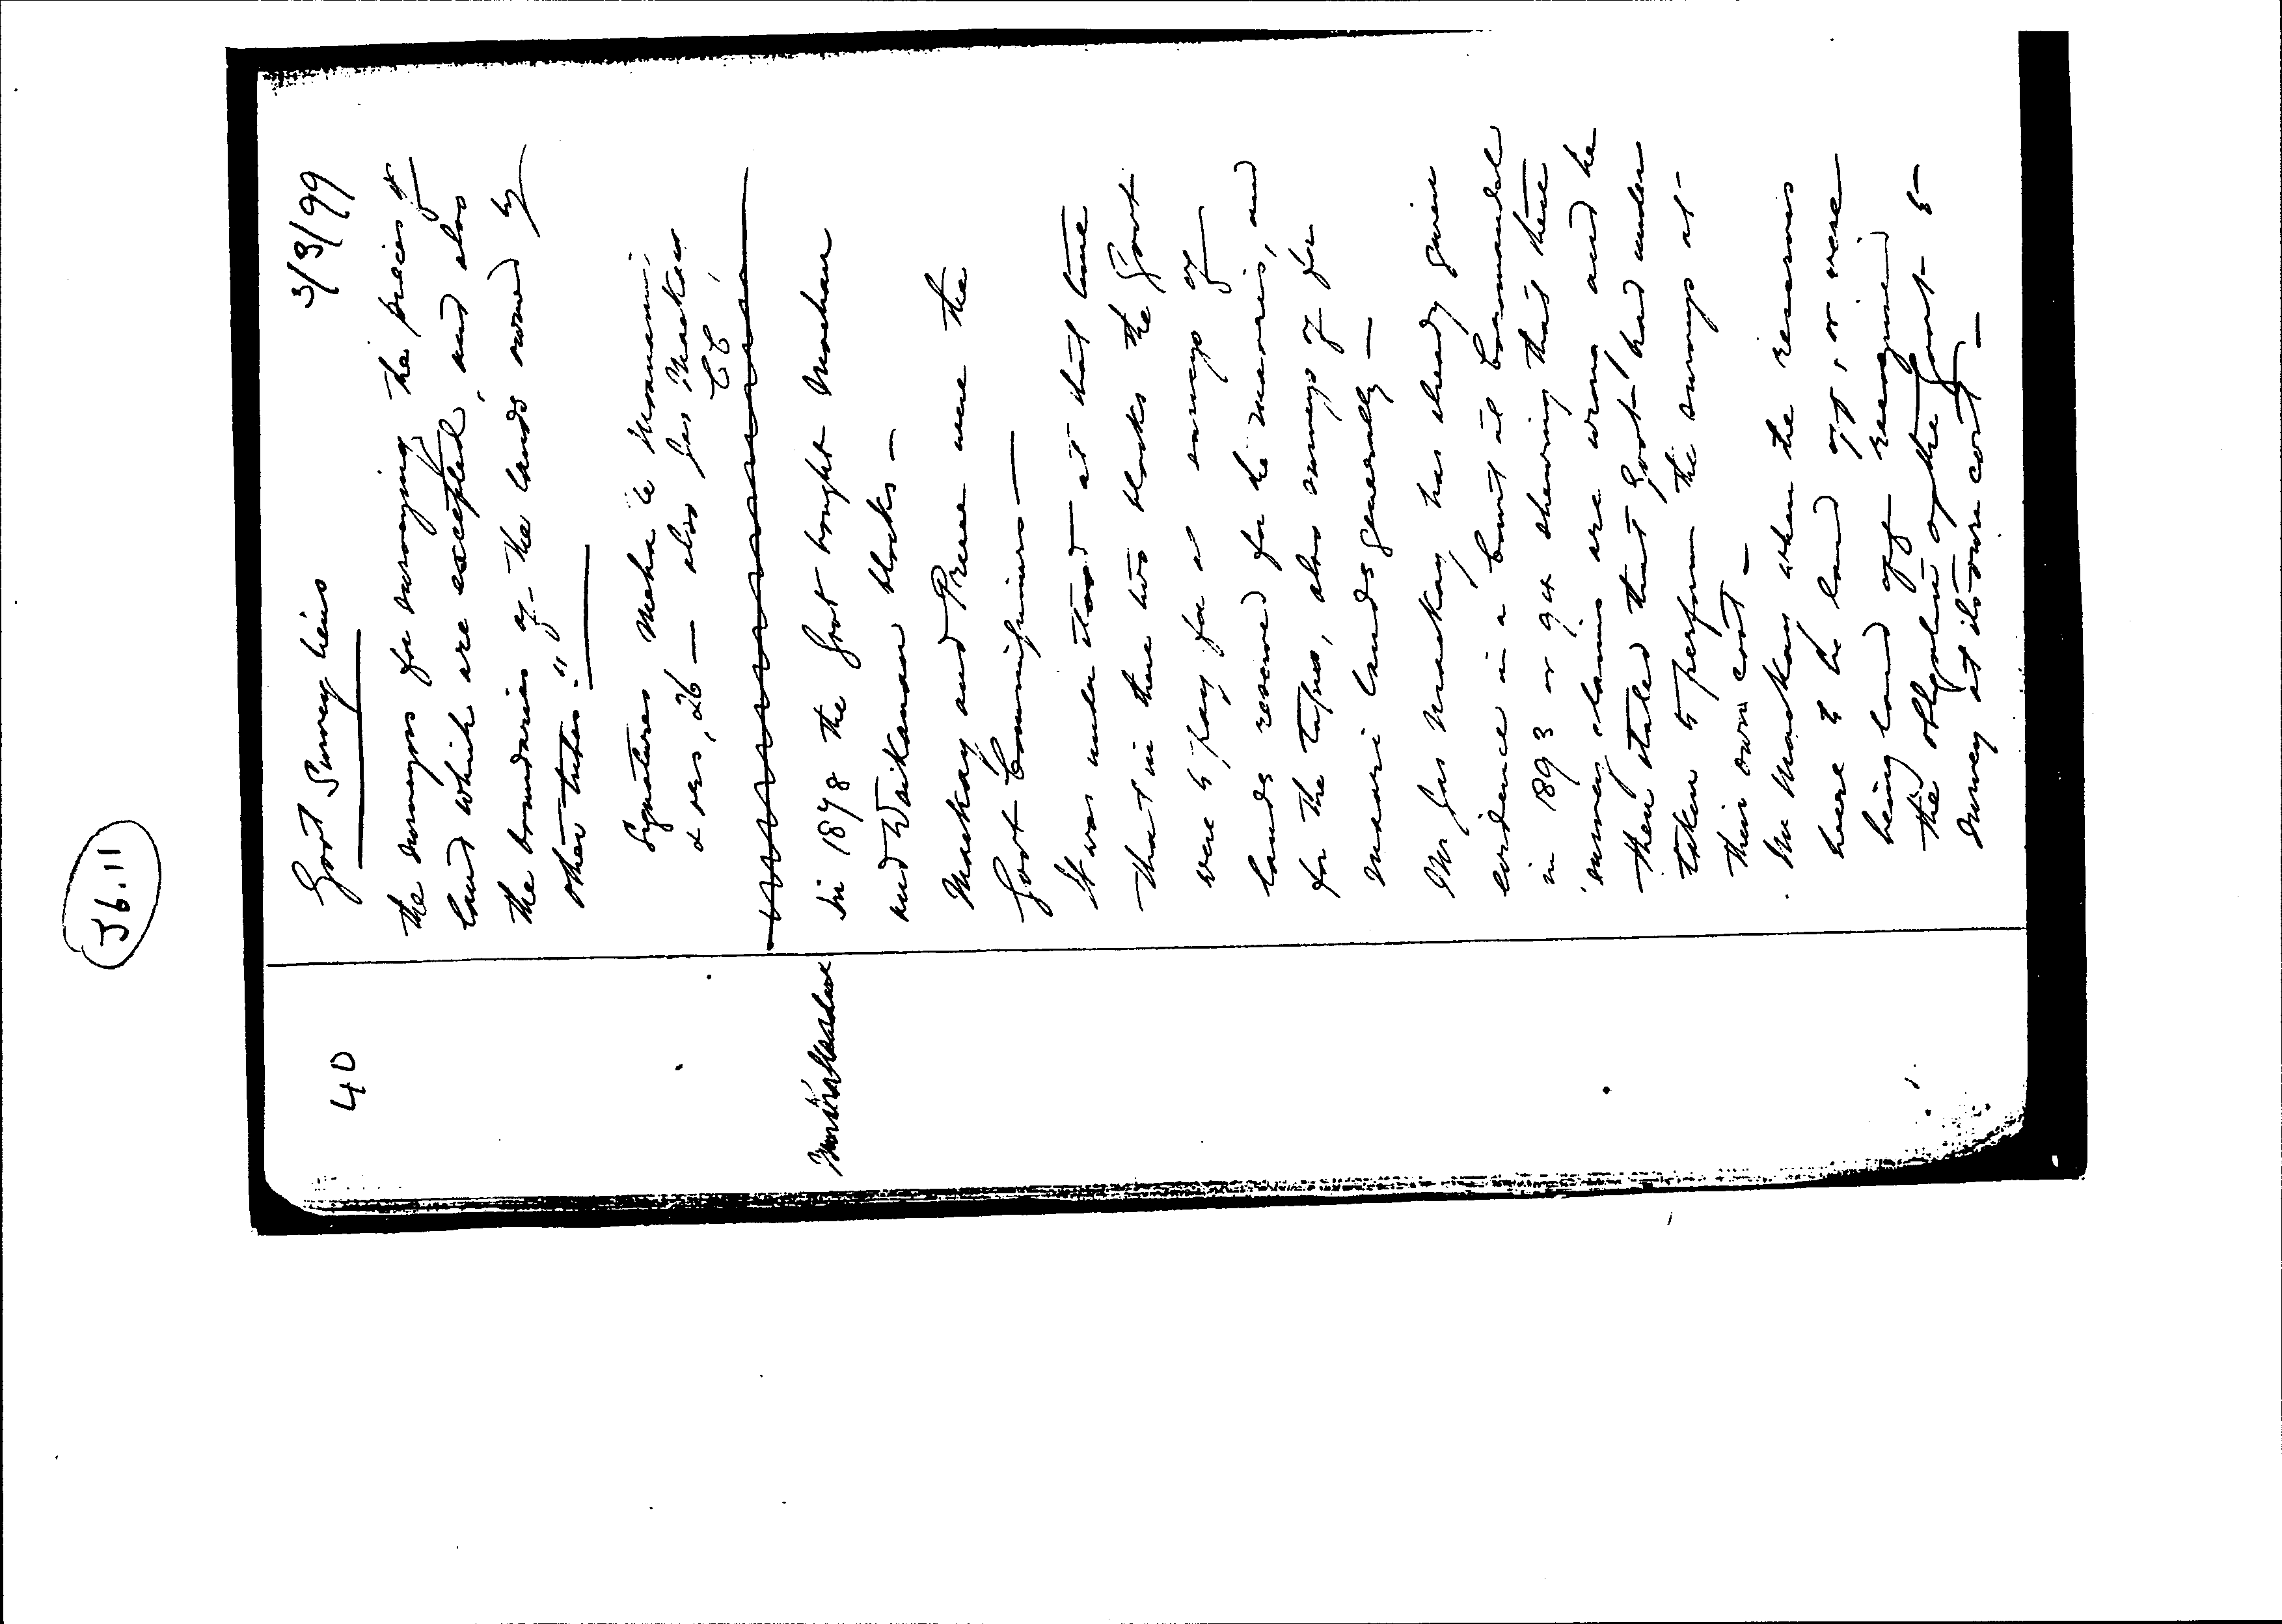 J6.11
40
Govt Survey liens 3/3/99
the surveyors for surveying the pieces of
land which are excepted, and also
the boundaries of the lands owned by
other tribes."
Signatures Meha te Moananui
& ors, 26 — also Jas Mackay
CC
In 1878 the Govt bought Moehau
and Waikanae blocks —
Mackay and Preece were the
Govt Commissioners —
It was understood at that time
that in these two blocks the Govt
were to pay for all surveys of
lands reserved for the maoris, and
for the tapus, also surveys of for
maori lands generally —
Mr Jas Mackay has already given
evidence in a Court at Coromandel
in 1893 or 94 shewing that these
survey claims are wrong and he
then stated that Govt had under
taken to perform the surveys at
their own cost —
Mr Mackay when the reserves
were to be land off, or were
being land off recognised
the obligation of the Govt to
survey at its own cost —